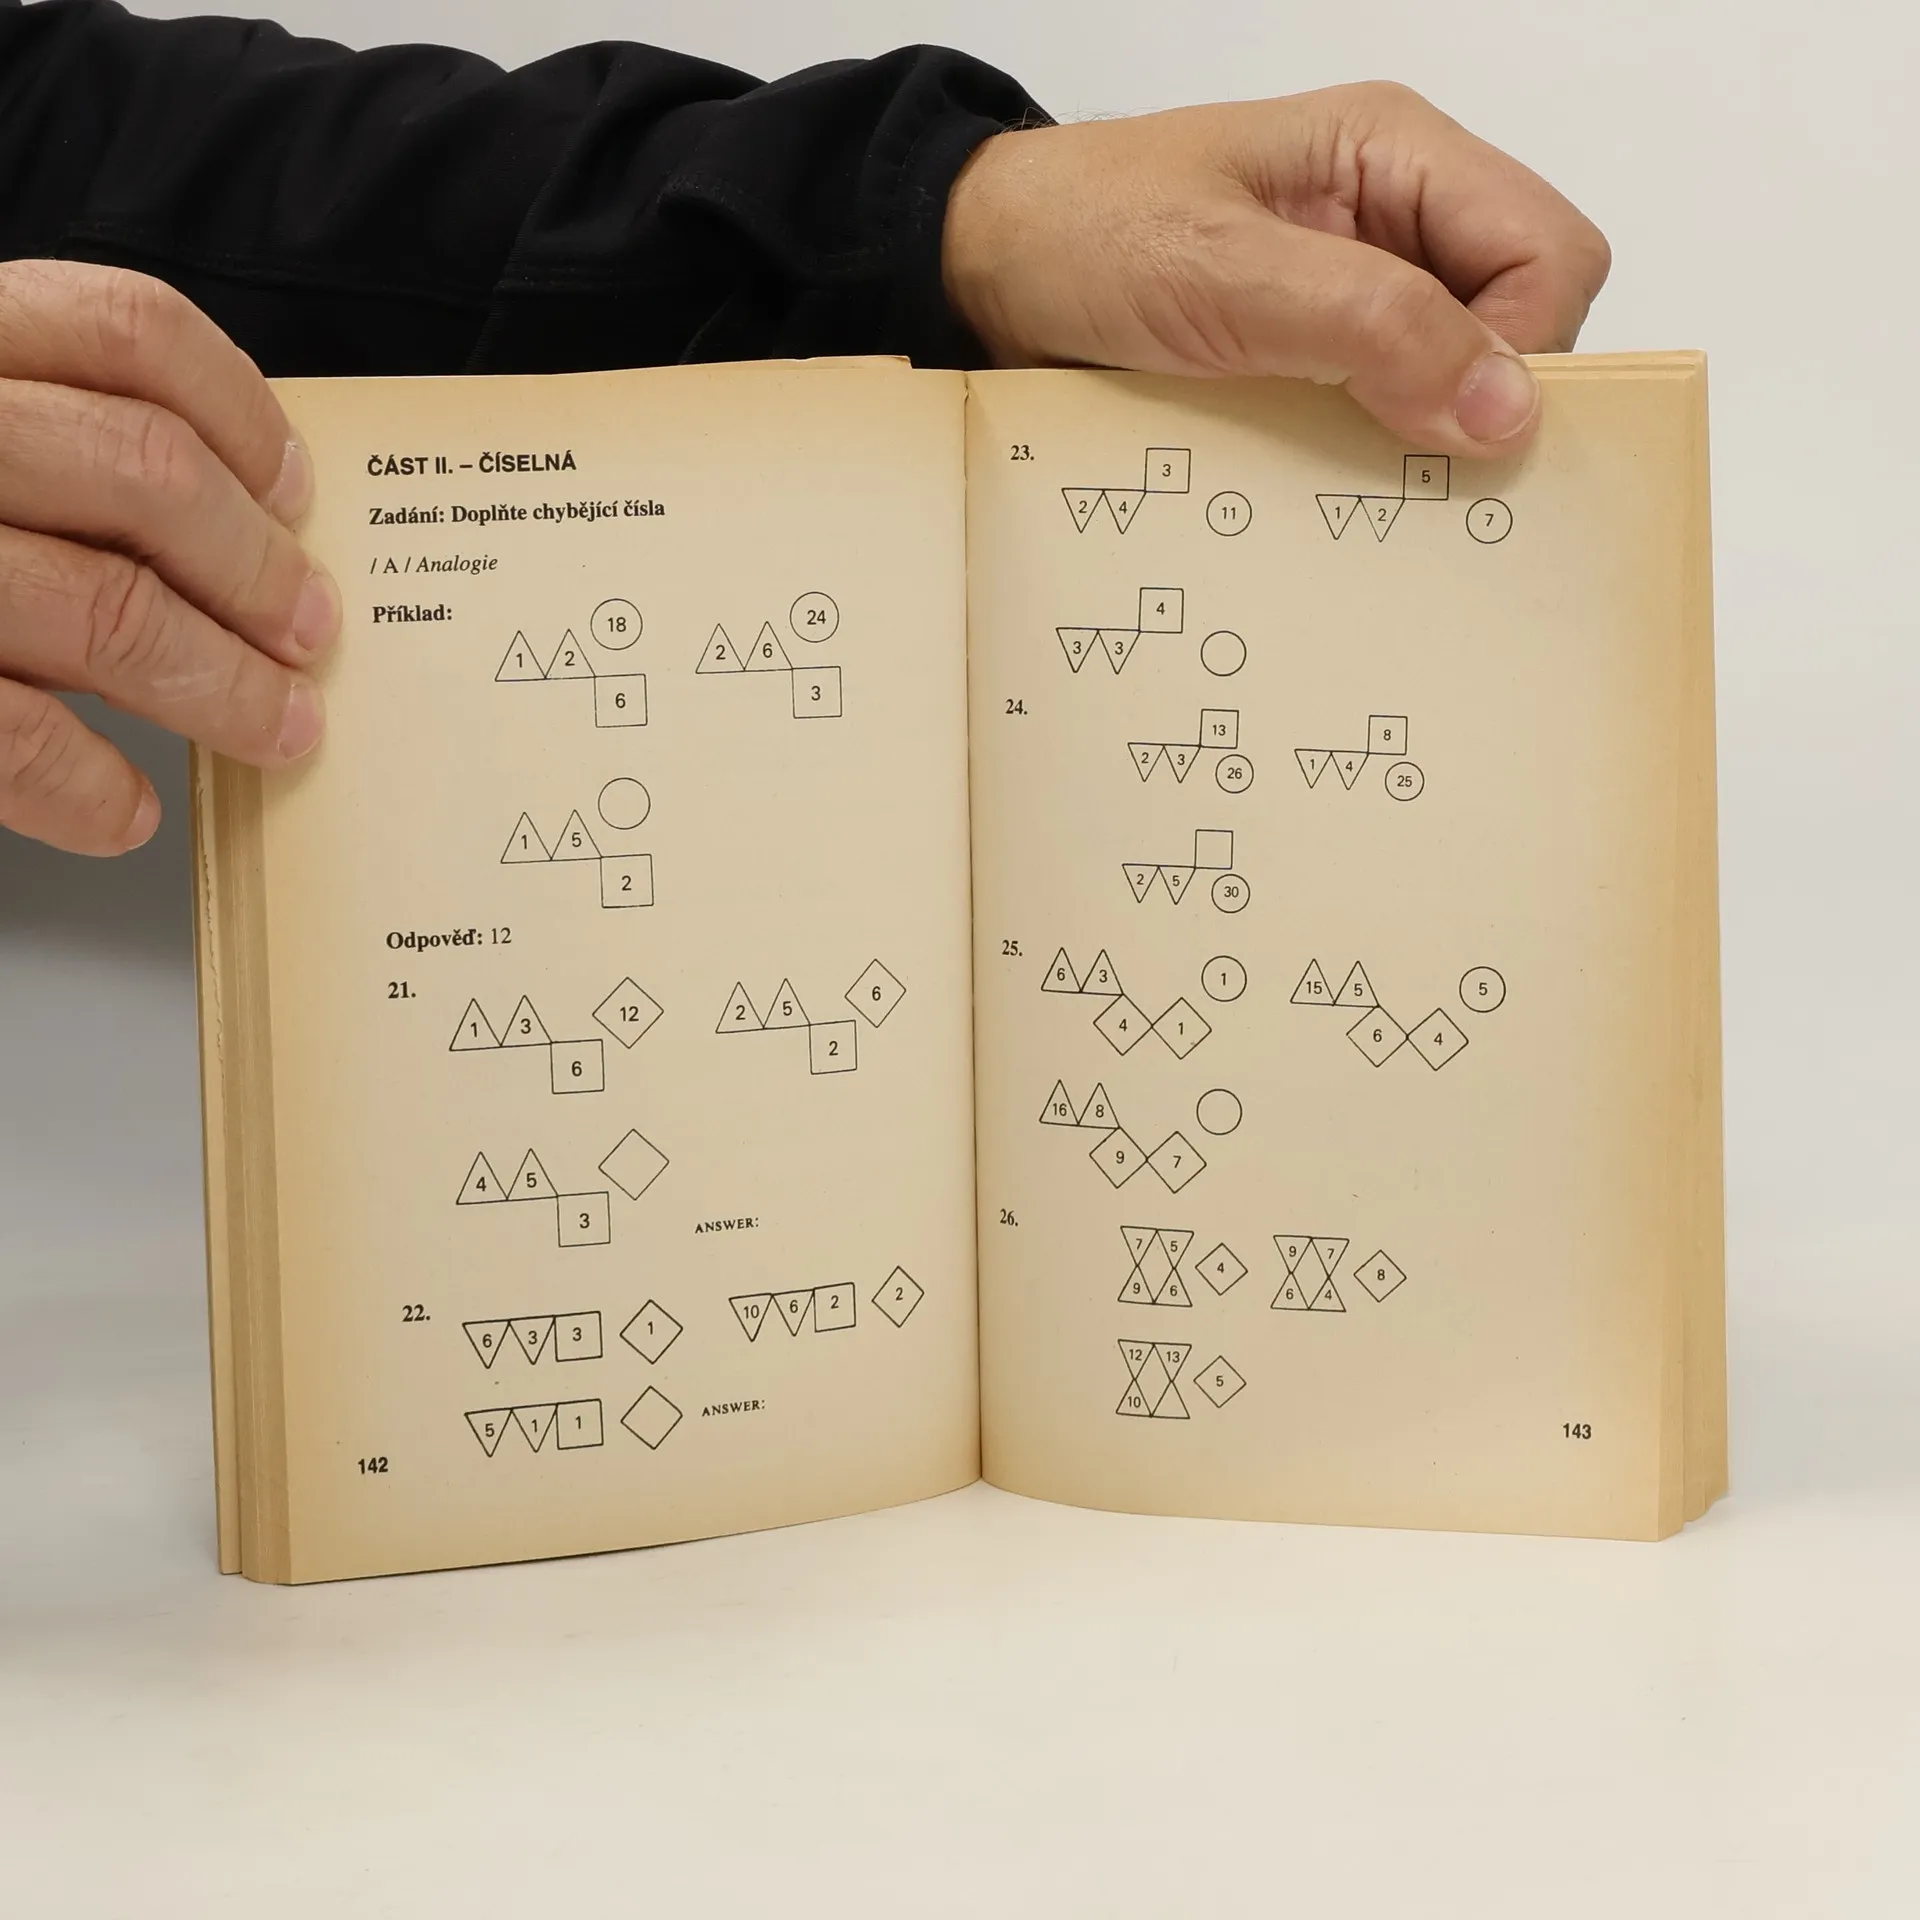 ČÁST II. – ČÍSELNÁ
Zadání: Doplňte chybějící čísla
/ A / Analogie
Příklad:
1 2 18 6
2 6 24 3
1 5 2
Odpověď: 12
21.
1 3 12 6
2 5 6 2
4 5 3
ANSWER:
22.
6 3 3 1
10 6 2 2
5 1 1
ANSWER:
142
23.
2 4 3 11
1 2 5 7
3 3 4
24.
2 3 13 26
1 4 8 25
2 5 30
25.
6 3 1 4 1
15 5 5 6 4
16 8 9 7
26.
7 5 9 6 4
9 7 6 4 8
12 13 10 5
143